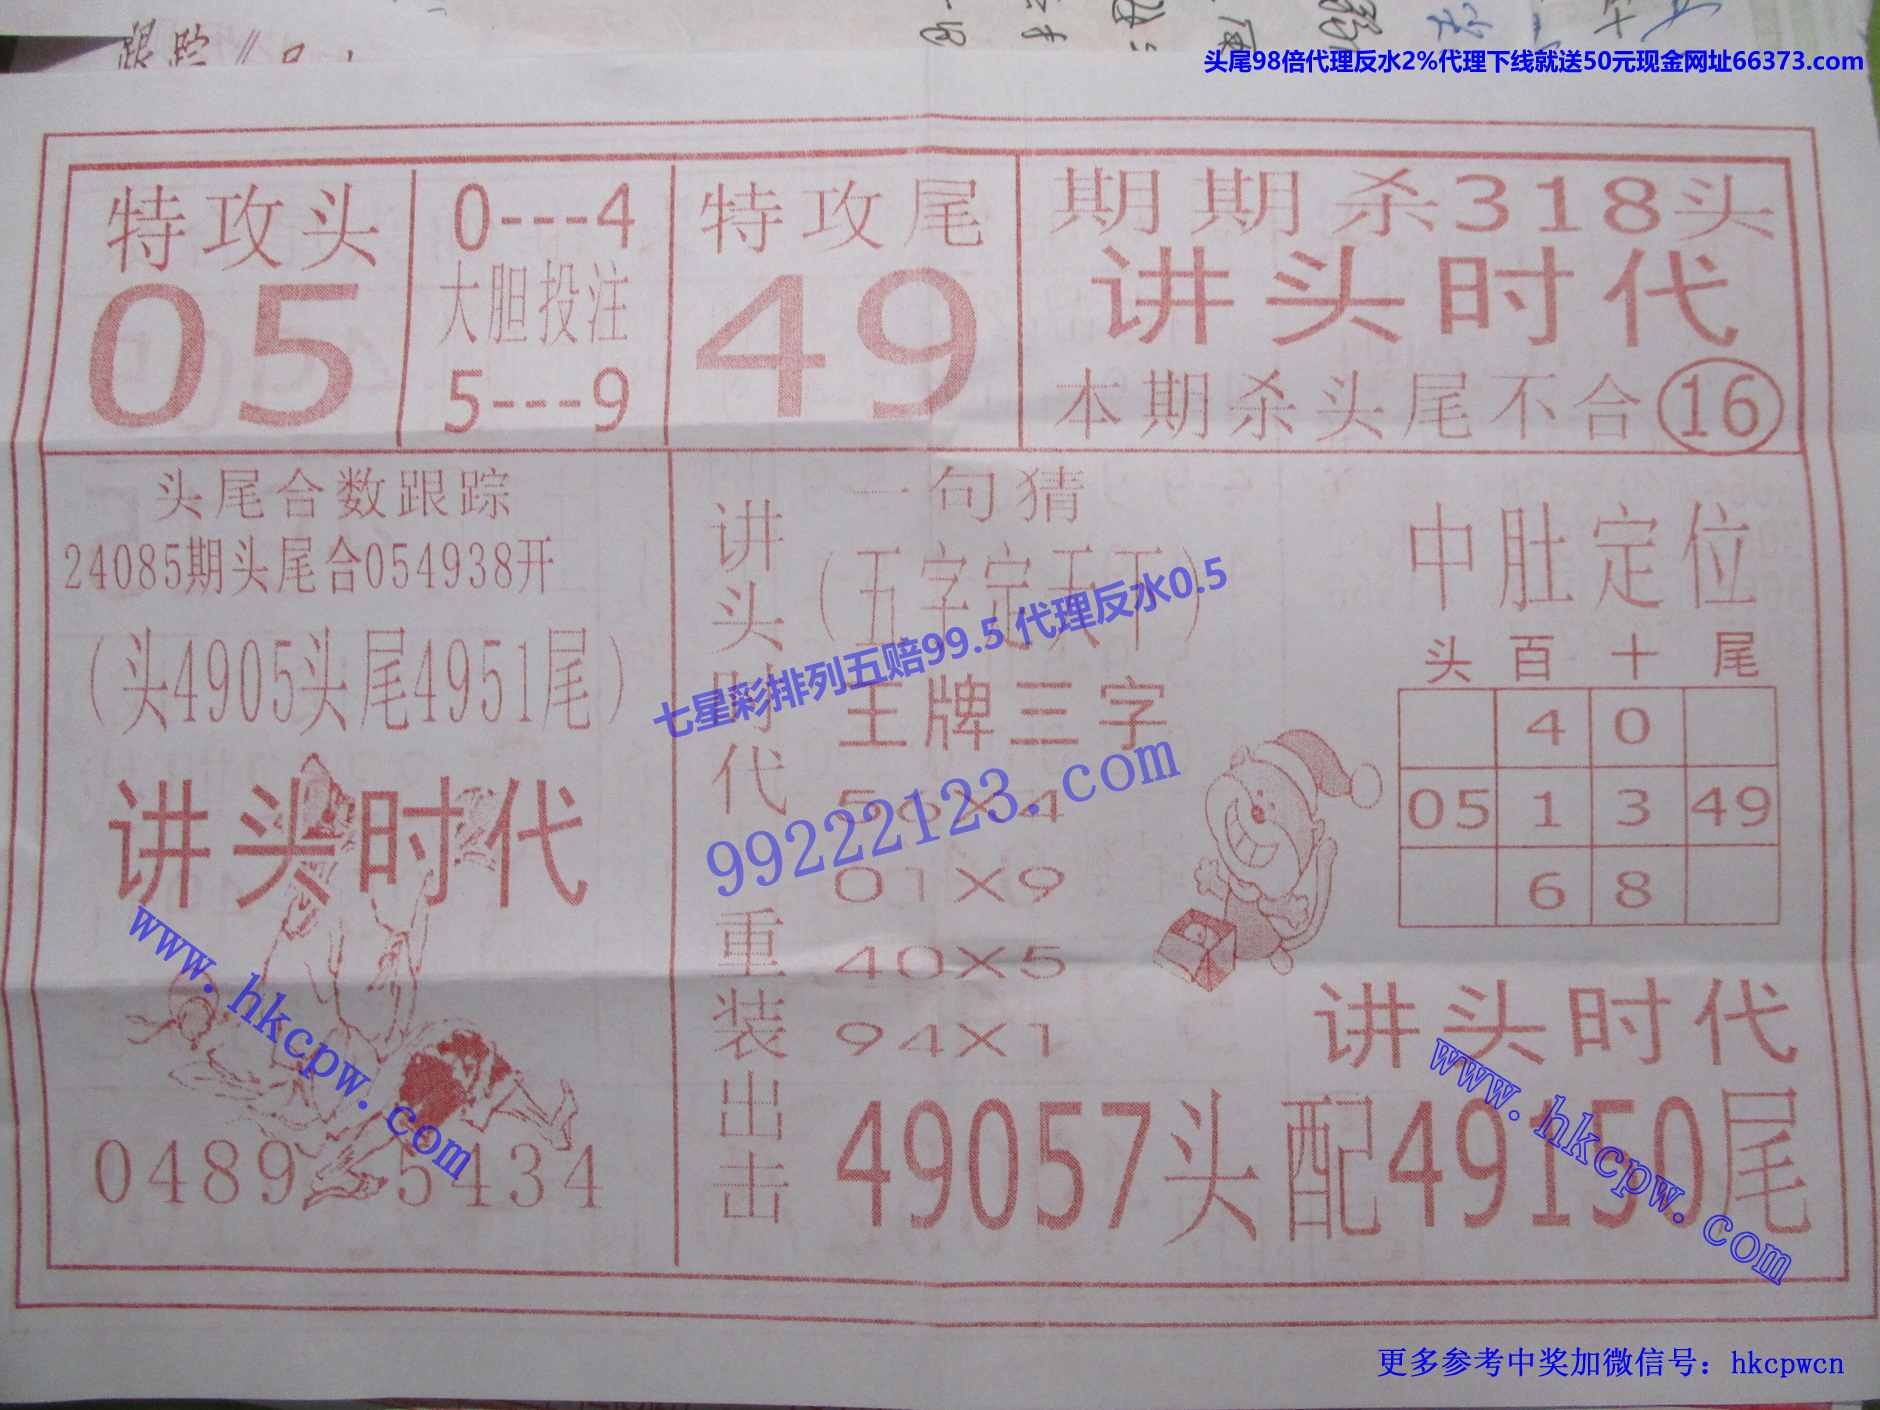 跟踪
头尾98倍代理反水2%代理下线就送50元现金网址66373.com
特攻头
05
0---4
大胆投注
5---9
特攻尾
49
期期杀318头
讲头时代
本期杀头尾不合16
头尾合数跟踪
24085期头尾合054938开
（头4905头尾4951尾）
讲头时代
www.hkcpw.com
0489
5434
讲头时代重装出击
一句猜
（五字定天下）
王牌三字
56X4
01X9
40X5
94X1
七星彩排列五赔99.5 代理反水0.5
99222123.com
中肚定位
头 百 十 尾
4 0
05 1 3 49
6 8
讲头时代
www.hkcpw.com
49057头配49150尾
更多参考中奖加微信号：hkcpwcn